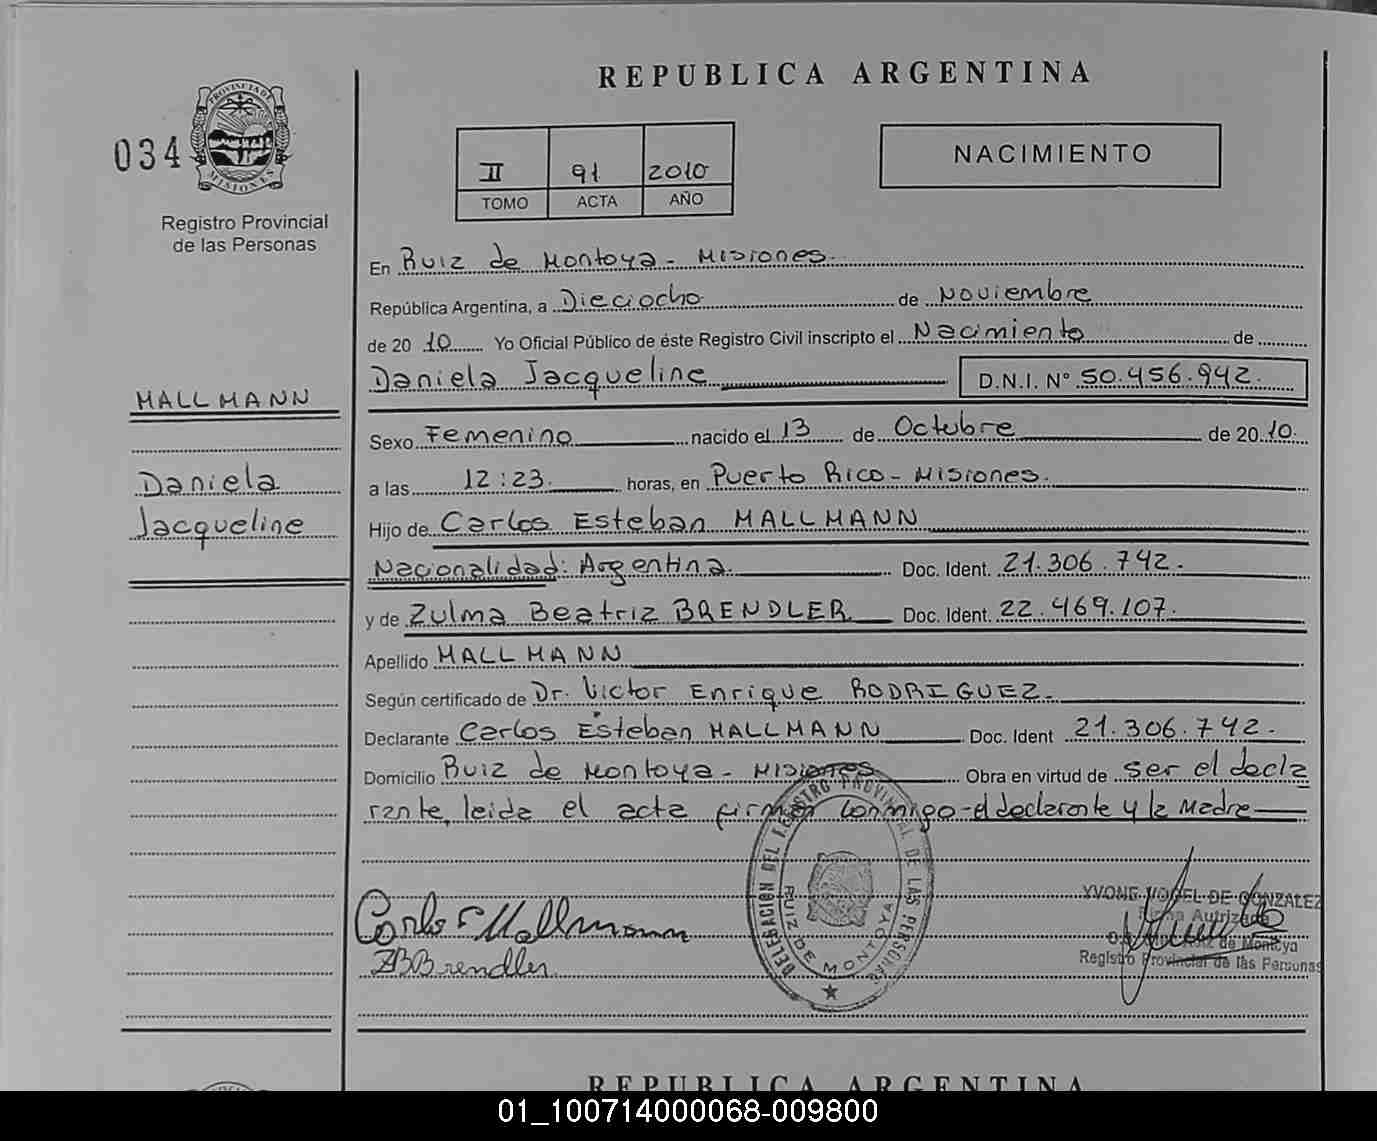 REPUBLICA ARGENTINA
034
PROVINCIA DE
MISIONES
Registro Provincial
de las Personas
II 91 2010
TOMO ACTA AÑO
NACIMIENTO
En Ruiz de Montoya - Misiones.
República Argentina, a Dieciocho de Noviembre
de 20 10 Yo Oficial Público de éste Registro Civil inscripto el Nacimiento de
Daniela Jacqueline D.N.I. Nº 50.456.942.
MALLMANN
Daniela
Jacqueline
Sexo Femenino nacido el 13 de Octubre de 20 10.
a las 12:23. horas, en Puerto Rico - Misiones.
Hijo de Carlos Esteban MALLMANN
Nacionalidad: Argentina. Doc. Ident. 21.306.742.
y de Zulma Beatriz BRENDLER Doc. Ident. 22.469.107.
Apellido MALLMANN
Según certificado de Dr. Victor Enrique RODRIGUEZ.
Declarante Carlos Esteban MALLMANN Doc. Ident 21.306.742.
Domicilio Ruiz de Montoya - Misiones Obra en virtud de ser el decla
rante, leida el acta firman conmigo - el declarante y la Madre
DELEGACION DEL REGISTRO PROVINCIAL DE LAS PERSONAS
RUIZ DE MONTOYA
Carlos E Mallmann
ZBBrendler
YVONE VOGEL DE GONZALEZ
Firma Autrizada
Ruiz de Montoya
Registro Provincial de las Personas
REPUBLICA ARGENTINA
01_100714000068-009800